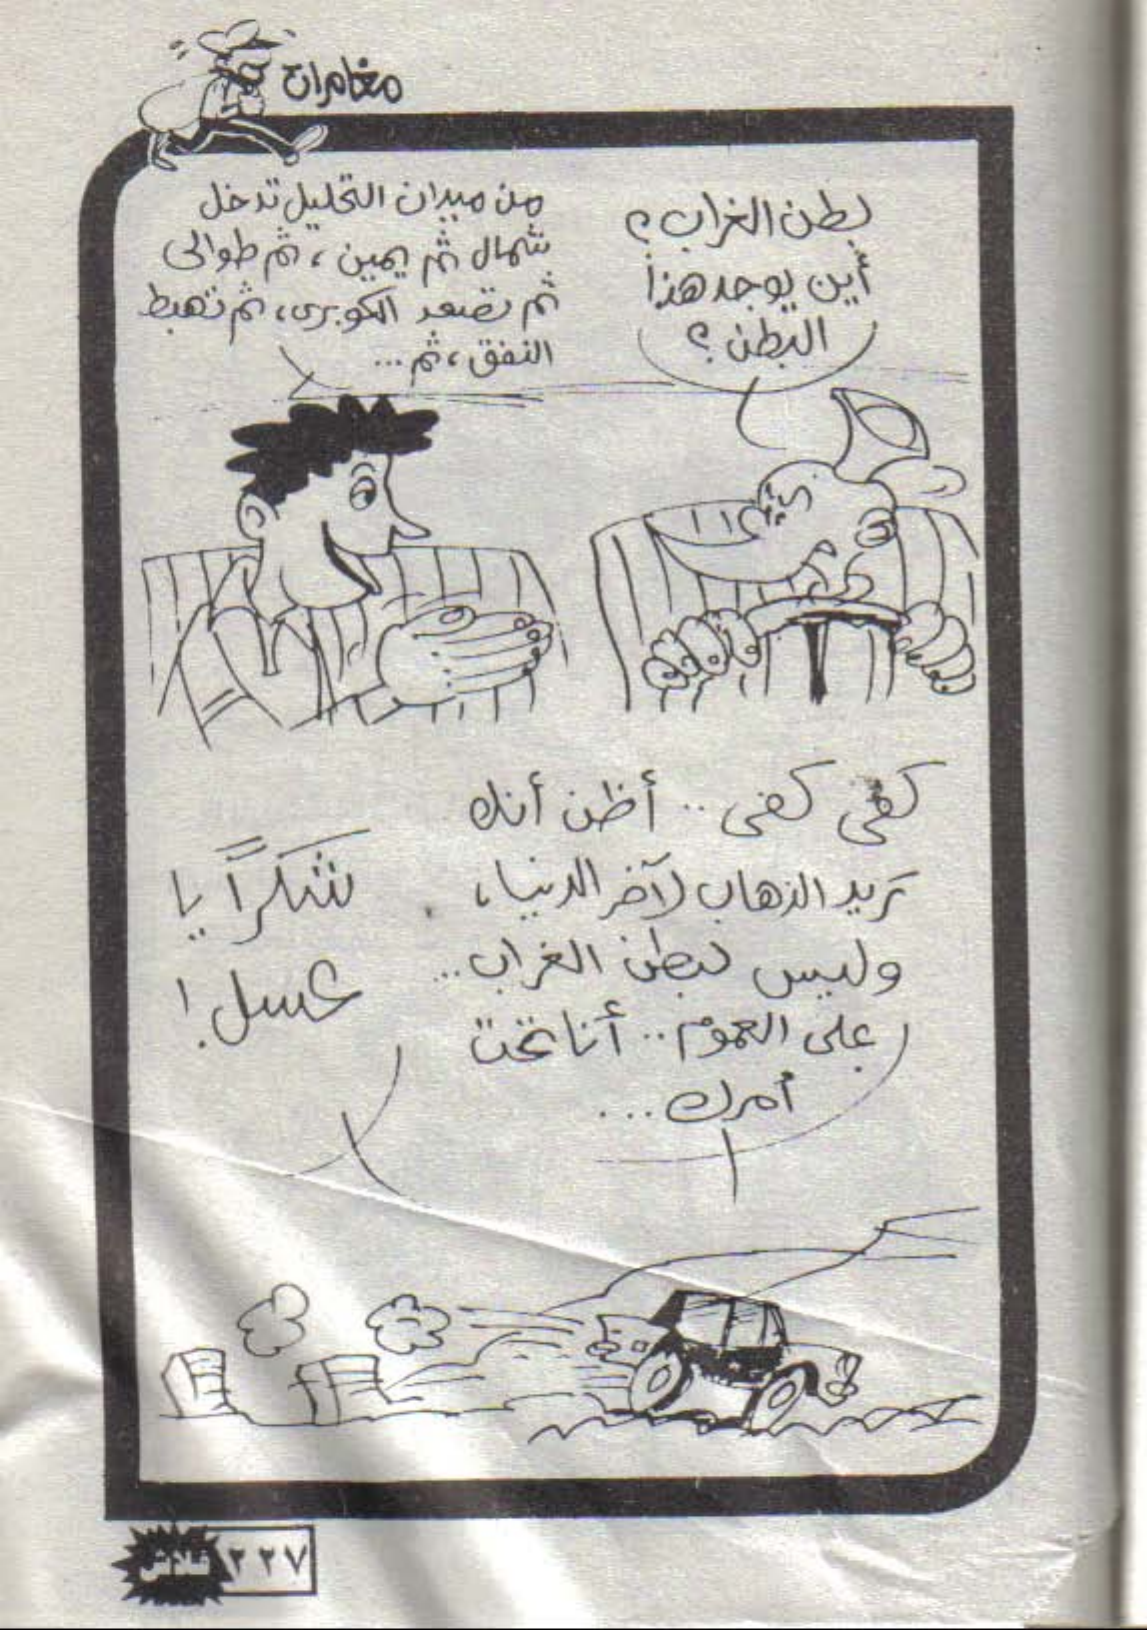 مغامرات
بطن الغراب؟
أين يوجد هذا
البطن؟
من ميدان التحليل تدخل
شمال ثم يمين، ثم طوالى
ثم تصعد الكوبرى، ثم تهبط
النفق، ثم...
كفى كفى.. أظن أنك
تريد الذهاب لآخر الدنيا،
وليس لبطن الغراب...
على العموم.. أنا تحت
أمرك...
شكراً يا
عسل!
فلاش ٢٢٧